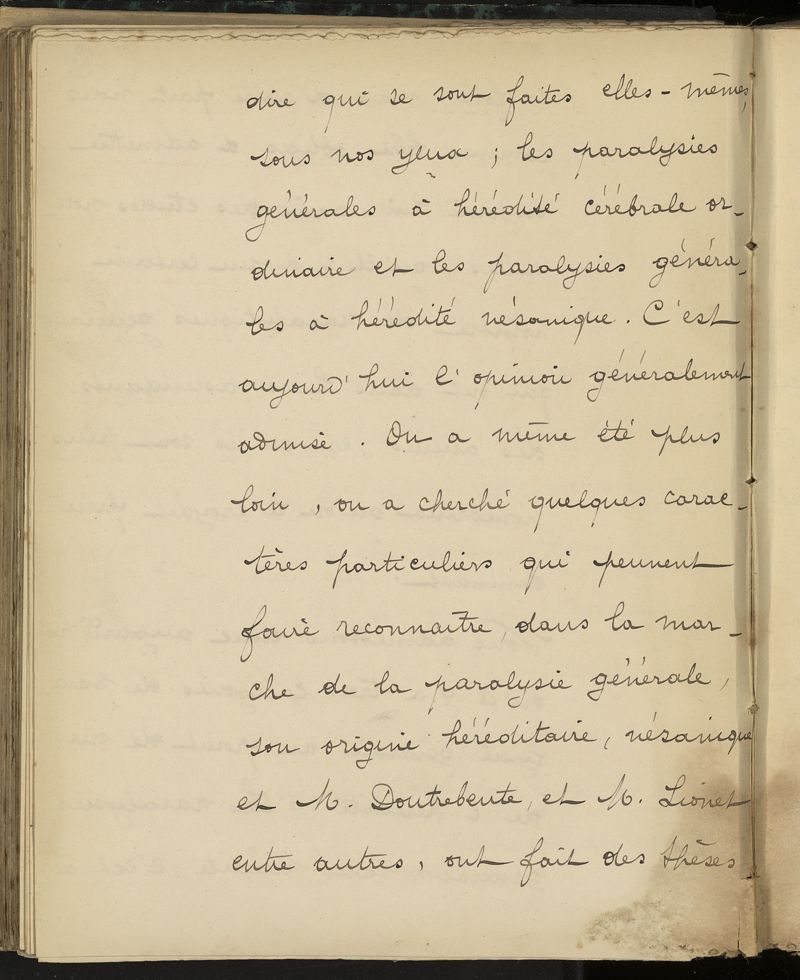 dire qui se sont faites elles-mêmes,
sous nos yeux ; les paralysies
générales à hérédité cérébrale or-
dinaire et les paralysies généra-
les à hérédité vésanique. C'est
aujourd'hui l'opinion généralement
admise. On a même été plus
loin, on a cherché quelques carac-
tères particuliers qui peuvent
faire reconnaître, dans la mar-
che de la paralysie générale,
son origine héréditaire, vésanique
et M. Doutrebente, et M. Lionet
entre autres, ont fait des thèses